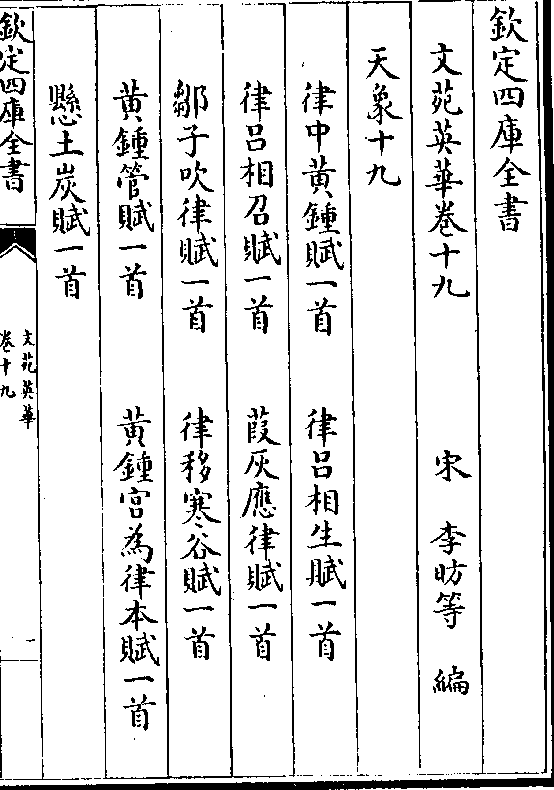 欽定四庫全書
文苑英華卷十九　宋　李昉等　編
天象十九
律中黄鍾賦一首　律呂相生賦一首
律呂相召賦一首　葭灰應律賦一首
鄒子吹律賦一首　律移寒谷賦一首
黄鍾管賦一首　黄鍾宫為律本賦一首
懸土炭賦一首
欽定四庫全書
文苑英華
卷十九
一